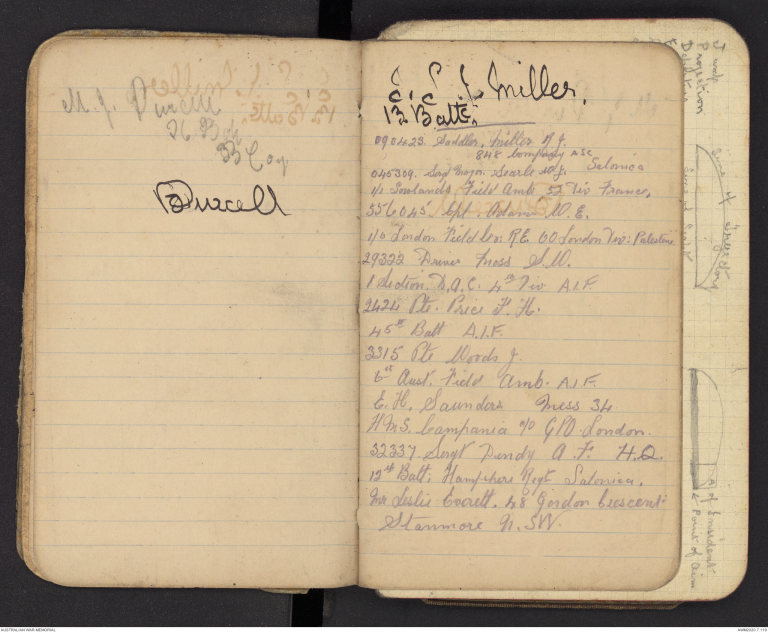 M. J. Purcell
26 Bat
B Coy
Purcell
E. C. J. Miller.
12. Batt.
090423. Saddler, Miller A J.
848 Company ASC
Salonica
045309. Serg Major. Searle W J.
1/1 Lowland Field Amb 52 Div France,
556045. Cpl. Adams W. E.
1/0 London Field Coy R.E. 60 London Div: Palestine
29322 Driver Moss S.W.
1 Section. D.A.C. 4th Div A.I.F.
2424 Pte. Price F. H.
45th Batt A.I.F.
3315 Pte Woods J.
6st Aust. Field Amb. A.I.F.
E. H. Saunders Mess 34
H.M.S. Campania c/o GPO London.
32337 Sergt Dendy A. F. H.Q.
12th Batt. Hampshire Regt Salonica.
Mr Leslie Everett. 48 Gordon Crescent
Stanmore N. SW.
Projection
Line of
Trajectory
A of Incident
& Point of Aim
AUSTRALIAN WAR MEMORIAL
AWM2020.7.119